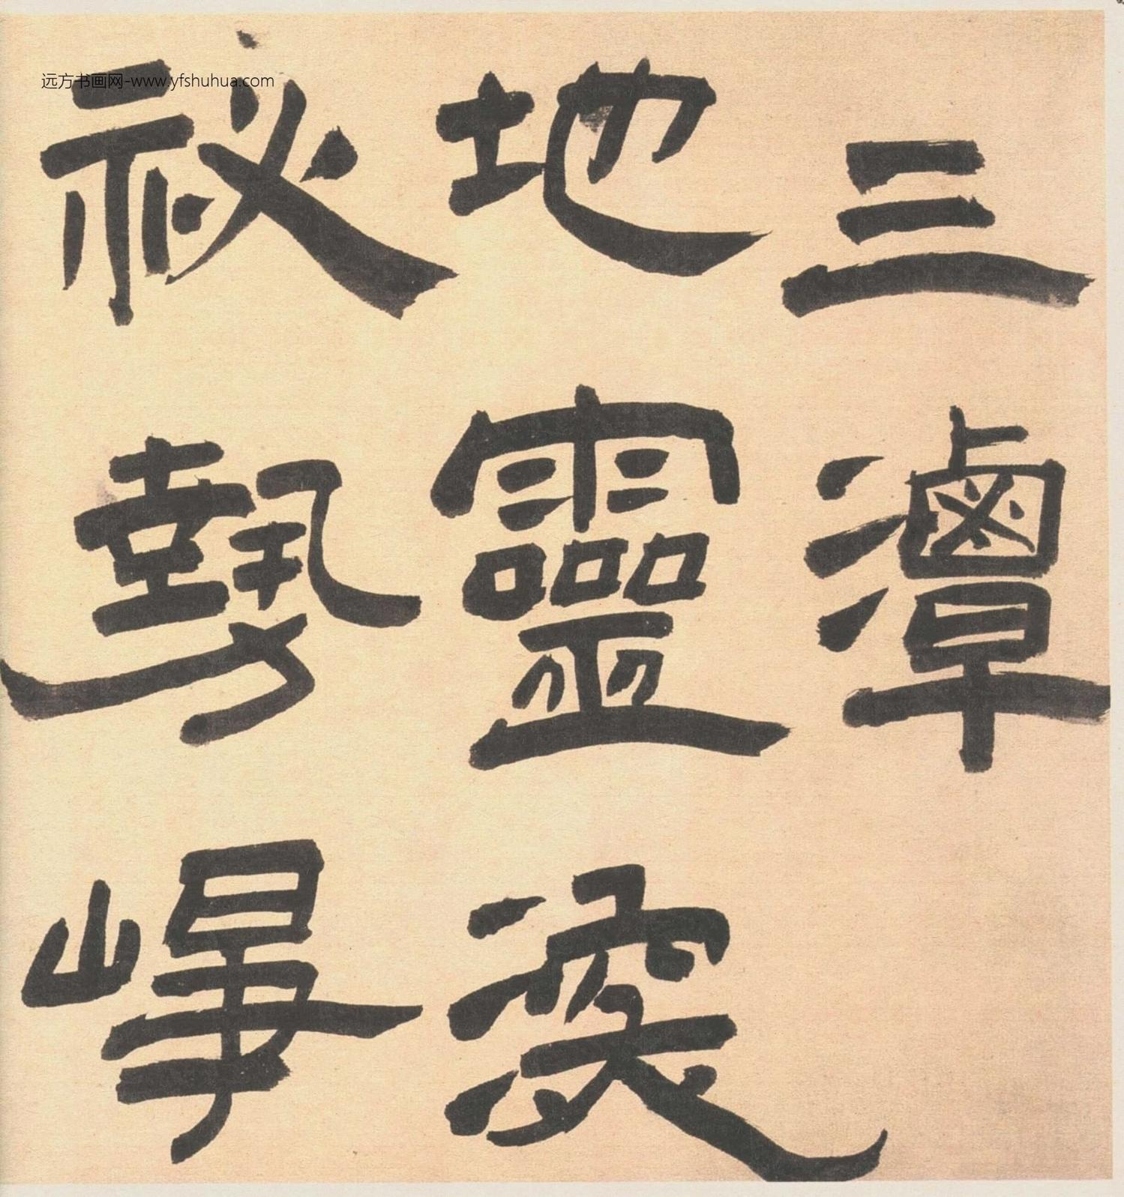 远方书画网-www.yfshuhua.com
三潭
地靈
祕勢崢